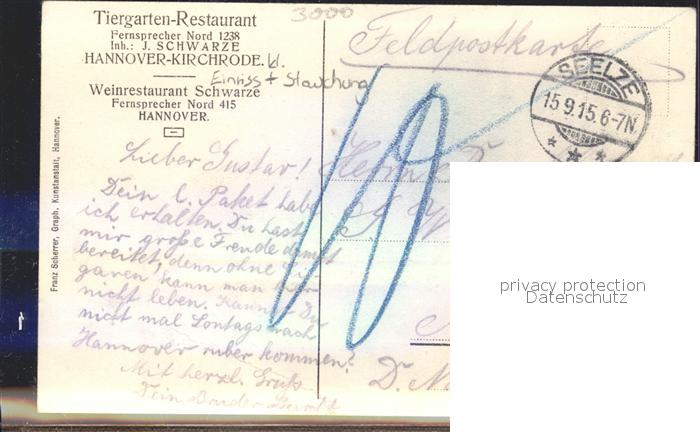 3000
Tiergarten-Restaurant
Fernsprecher Nord 1238
Inh.: J. SCHWARZE
HANNOVER-KIRCHRODE.
kl.
Einriss + Stauchung
Weinrestaurant Schwarze
Fernsprecher Nord 415
HANNOVER.
Franz Scherrer, Graph. Kunstanstalt, Hannover.
Feldpostkarte
SEELZE
15.9.15.6-7N.
Lieber Gustav!
Dein l. Paket habe
ich erhalten. Du hast
mir große Freude damit
bereitet, denn ohne Zi-
garren kann man hier
nicht leben. Kannst Du
nicht mal Sontags nach
Hannover rüber kommen?
Mit herzl. Gruß
Dein Bruder
privacy protection
Datenschutz